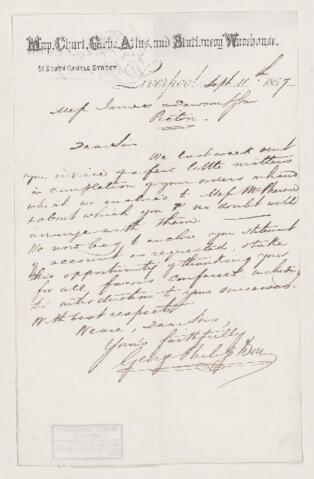 Map, Chart, Globe, Atlas, and Stationery Warehouse.
51 SOUTH CASTLE STREET
Liverpool Sept 11th 1857
Mess James Dawson &
Dear Sirs
We last week sent
you invoice of a few little matters
in completion of your orders on hand
what we enclosed to Mess
about which you no doubt will
arrange with them.
We now beg to enclose you statement
of account as requested, & take
this opportunity of thanking you
for all favors conferred including
the introduction to your successors.
With best respects
We are, Dear Sirs,
Yours faithfully
George Philip & Son